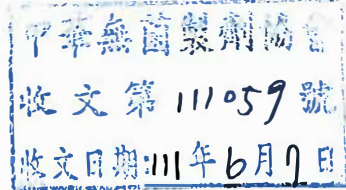 中華無菌製劑協會
收文第111059號
收文日期:111年6月7日